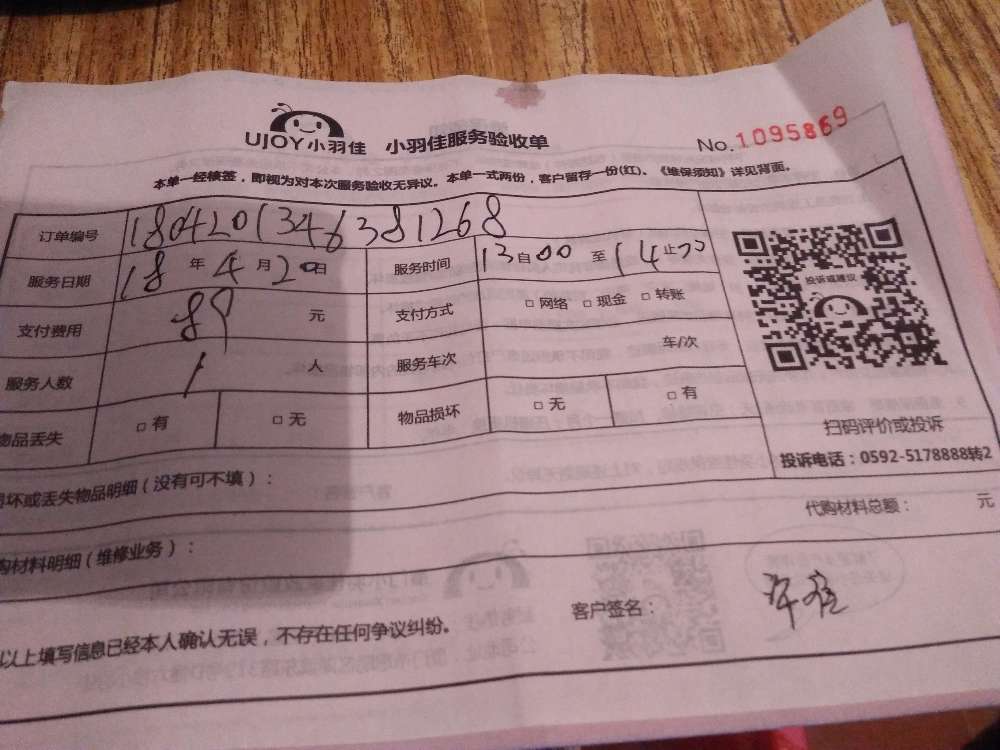 UJOY小羽佳 小羽佳服务验收单 No.1095869
本单一经核签，即视为对本次服务验收无异议。本单一式两份，客户留存一份(红)。《维保须知》详见背面。
订单编号 1804201346381268
服务日期 18年4月20日 服务时间 13自00至14止00
支付费用 89元 支付方式 □网络 □现金 □转账
服务人数 1人 服务车次 车/次
物品丢失 □有 □无 物品损坏 □无 □有
投诉或建议
扫码评价或投诉
投诉电话：0592-5178888转2
损坏或丢失物品明细（没有可不填）：
购材料明细（维修业务）： 代购材料总额： 元
以上填写信息已经本人确认无误，不存在任何争议纠纷。 客户签名：